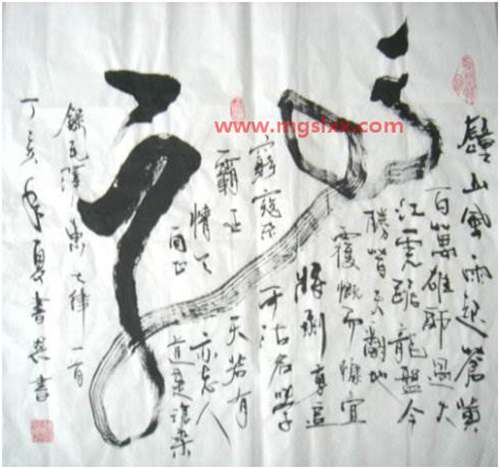 鐘山風雨起蒼黃
百萬雄師過大
江虎踞龍盤今
勝昔天翻地
覆慨而慷宜
將剩勇追
窮寇不
可沽名學
霸王
天若有
情天
亦老人
間正
道是滄桑
錄毛澤東七律一首
丁亥年夏書
www.mgslxx.com